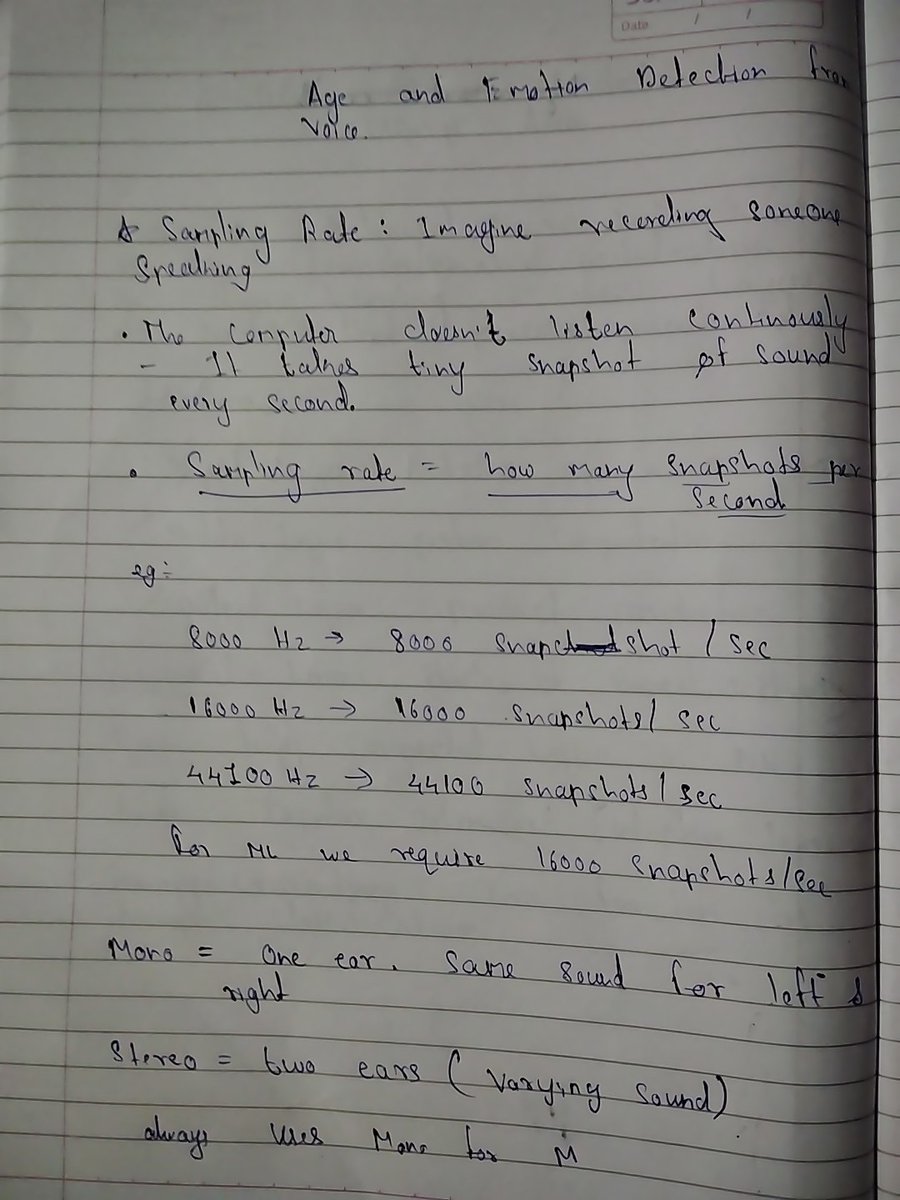 Date / /
Age and Emotion Detection from
Voice.
Sampling Rate : Imagine recording someone
Speaking
• The Computer doesn't listen continuously
- It takes tiny snapshot of sound
every second.
• Sampling rate = how many snapshots per
second
eg :-
8000 Hz → 8000 snapshot / sec
16000 Hz → 16000 snapshots / sec
44100 Hz → 44100 snapshots / sec
for ML we require 16000 snapshots/sec
Mono = One ear. Same sound for left &
right
Stereo = two ears ( Varying sound)
always uses Mono for M